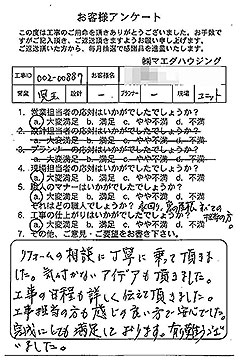 お客様アンケート
この度は工事のご用命を頂きありがとうございました。お手数で
すがご記入頂き、ご返送頂きますようお願い申し上げます。
ご返送頂いた方から、毎月抽選で感謝品を進呈いたします。
㈱マエダハウジング
工事ID 002-00887 お客様名
営業 児玉 設計 － プランナー － 現場 ユニット
1. 営業担当者の応対はいかがでしたでしょうか？
(a.) 大変満足 b. 満足 c. やや不満 d. 不満
2. 設計担当者の応対はいかがでしたでしょうか？
a. 大変満足 b. 満足 c. やや不満 d. 不満
3. プランナーの応対はいかがでしたでしょうか？
a. 大変満足 b. 満足 c. やや不満 d. 不満
4. 現場担当者の応対はいかがでしたでしょうか？
(a.) 大変満足 b. 満足 c. やや不満 d. 不満
5. 職人のマナーはいかがでしたでしょうか？
(a.) 大変満足 b. 満足 c. やや不満 d. 不満
それはどの職人でしょうか？
担当の方。
6. 工事の仕上がりはいかがでしたでしょうか？
(a.) 大変満足 b. 満足 c. やや不満 d. 不満
7. その他、ご意見・ご要望をお書き下さい。
リフォームの相談に丁寧に乗って頂きま
した。気付かないアイデアも頂きました。
工事の日程も詳しく伝えて頂きました。
工事担当の方も感じの良い方で安心でした。
完成にとても満足しております。有難うござ
いました。